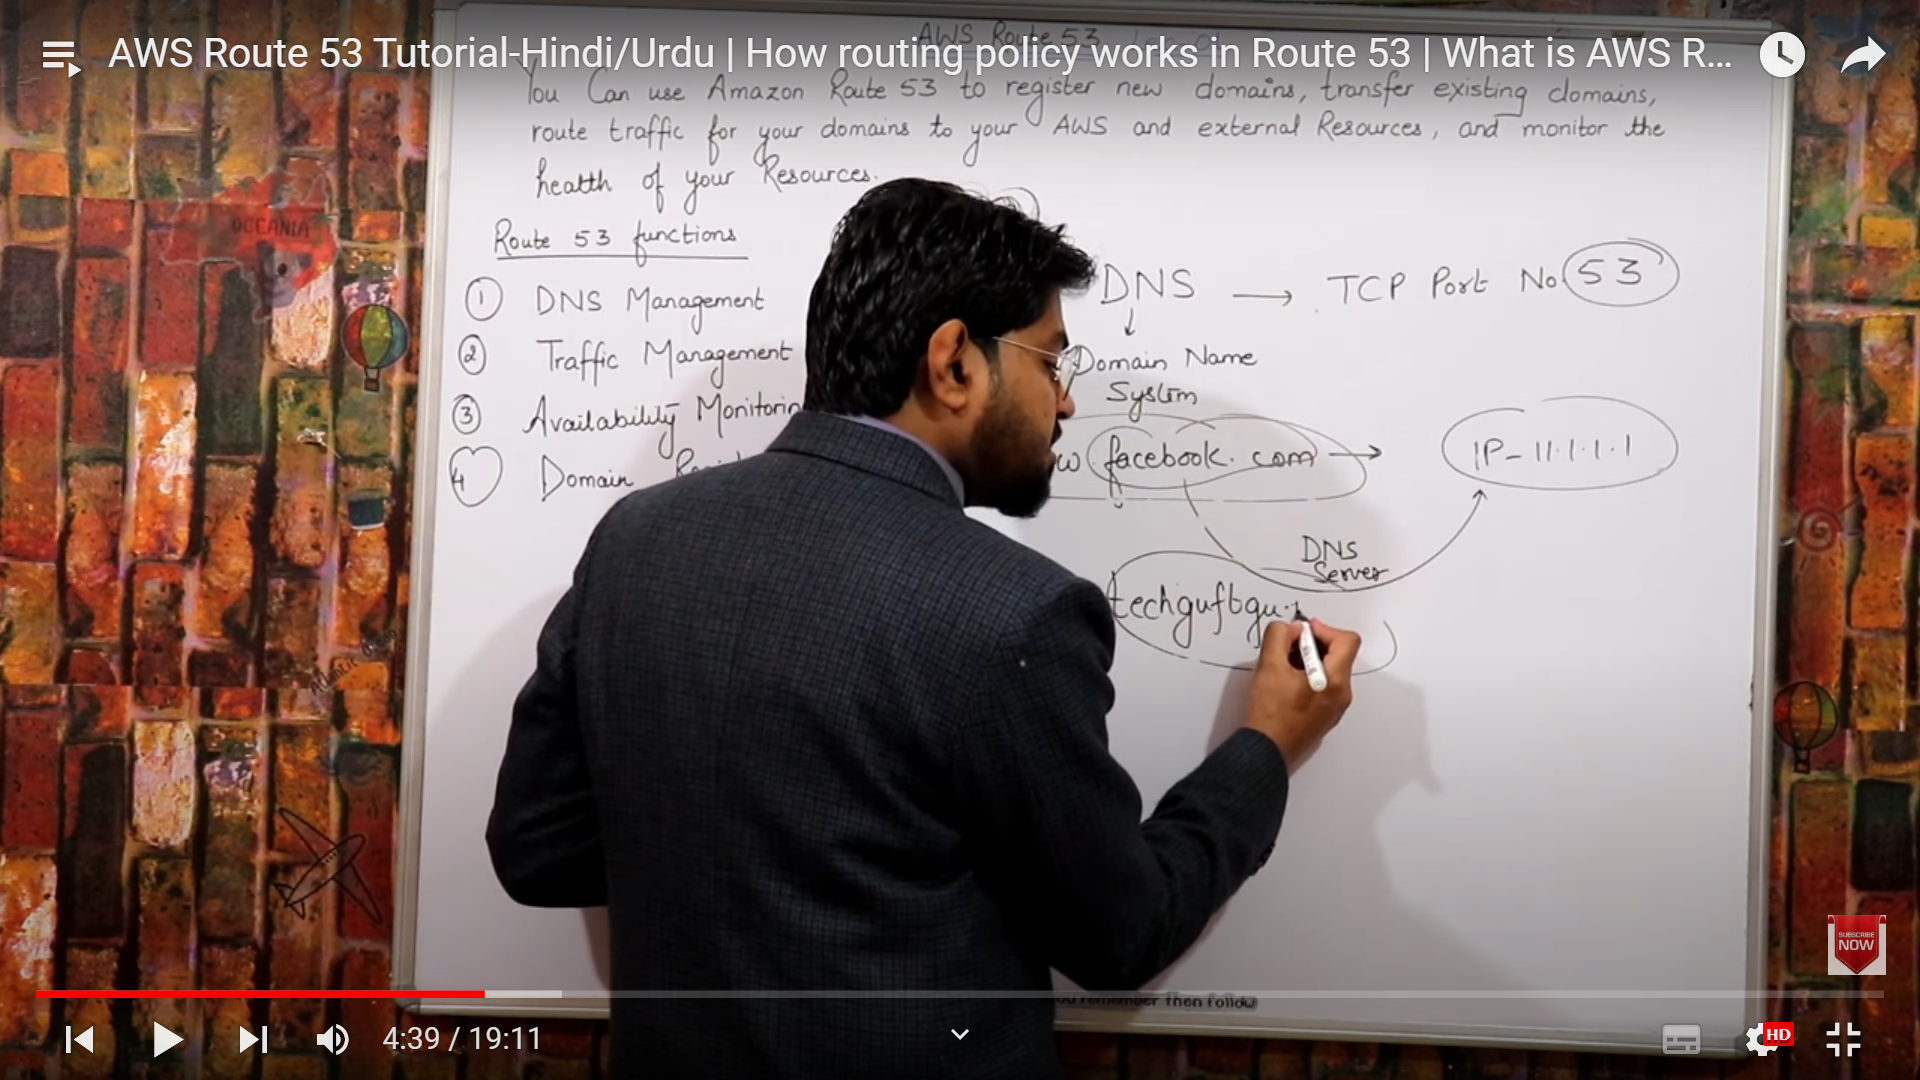 AWS Route 53 Tutorial-Hindi/Urdu | How routing policy works in Route 53 | What is AWS R...
AWS Route 53
You Can use Amazon Route 53 to register new domains, transfer existing domains,
route traffic for your domains to your AWS and external Resources, and monitor the
health of your Resources.
Route 53 functions
1 DNS Management
2 Traffic Management
3 Availability Monitorin
4 Domain
DNS → TCP Port No. 53
↓
Domain Name
System
w.facebook.com → IP-11.1.1.1
DNS
Server
techguftgu.
OCEANIA
Atlantic
SUBSCRIBE
NOW
you remember then follow
4:39 / 19:11
HD